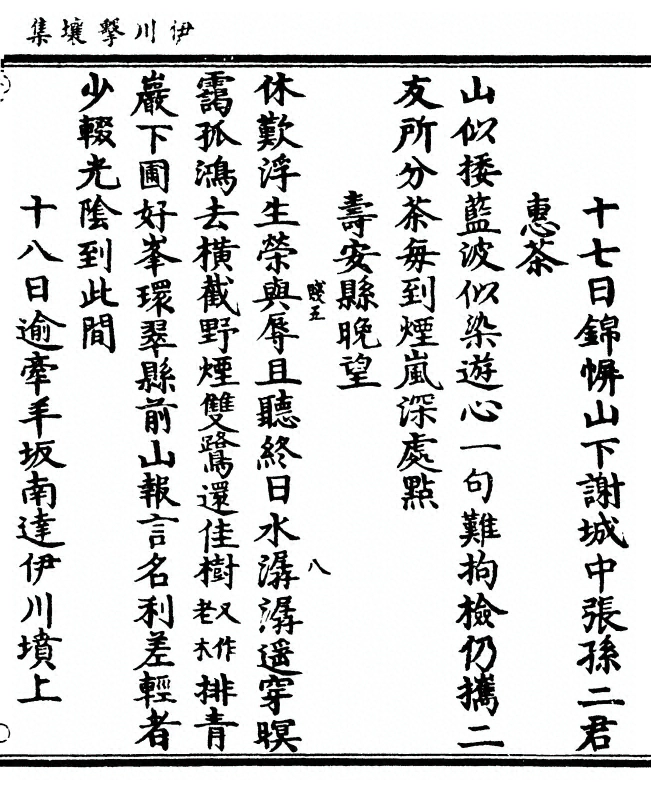 伊川擊壤集
十七日錦幈山下謝城中張孫二君
惠茶
山似挼藍波似染遊心一句難拘檢仍攜二
友所分茶每到煙嵐深處點
壽安縣晚望
賤五
八
休歎浮生榮與辱且聽終日水潺潺遥穿暝
靄孤鴻去橫截野煙雙鷺還佳樹又作老木排青
巖下圃好峯環翠縣前山報言名利差輕者
少輟光隂到此間
十八日逾牽羊坂南達伊川墳上